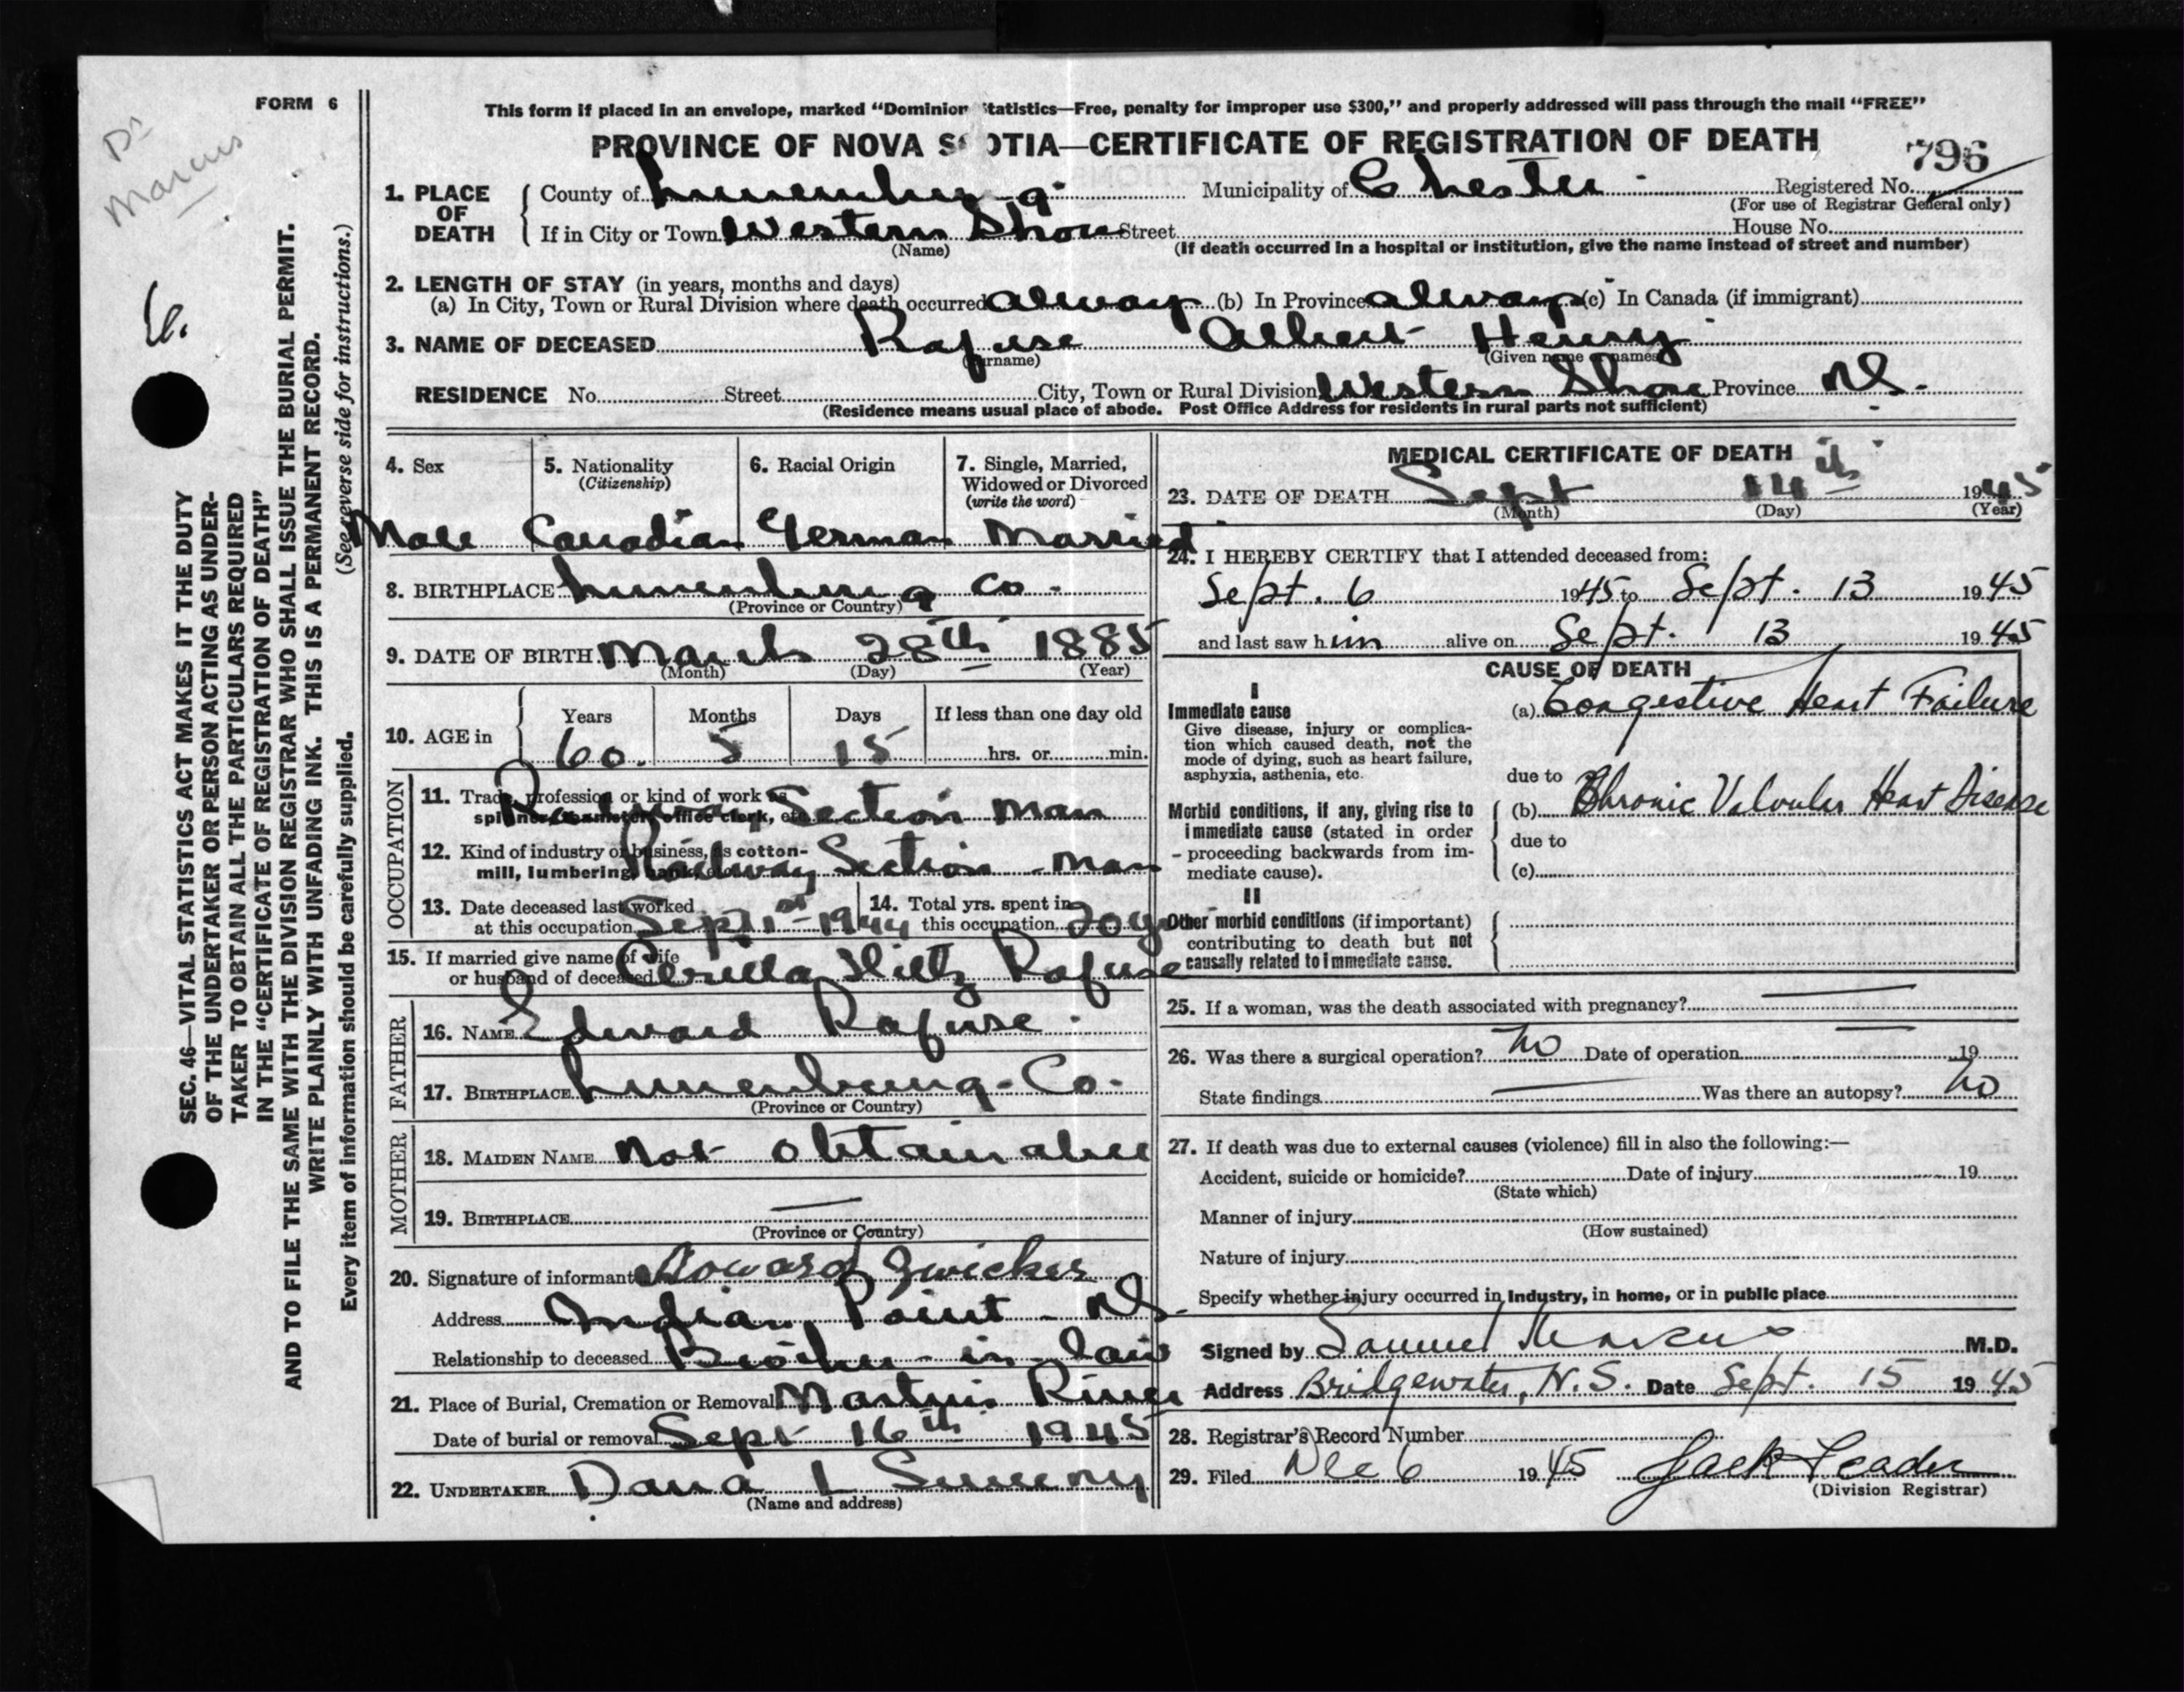 FORM 6
Dr
Marcus
This form if placed in an envelope, marked “Dominion Statistics—Free, penalty for improper use $300,” and properly addressed will pass through the mail “FREE”
PROVINCE OF NOVA SCOTIA—CERTIFICATE OF REGISTRATION OF DEATH
796
1. PLACE OF DEATH County of Lunenburg Municipality of Chester Registered No.
(For use of Registrar General only)
If in City or Town Western Shore Street House No.
(Name) (If death occurred in a hospital or institution, give the name instead of street and number)
2. LENGTH OF STAY (in years, months and days)
(a) In City, Town or Rural Division where death occurred always (b) In Province always (c) In Canada (if immigrant)
3. NAME OF DECEASED Rafuse Albert Henry
(Surname) (Given name or names)
RESIDENCE No. Street City, Town or Rural Division Western Shore Province N.S.
(Residence means usual place of abode. Post Office Address for residents in rural parts not sufficient)
4. Sex 5. Nationality (Citizenship) 6. Racial Origin 7. Single, Married, Widowed or Divorced (write the word)
Male Canadian German Married
8. BIRTHPLACE Lunenburg Co.
(Province or Country)
9. DATE OF BIRTH March 28th 1885
(Month) (Day) (Year)
10. AGE in Years Months Days If less than one day old
60. 5 15 hrs. or min.
OCCUPATION
11. Trade, profession or kind of work as spinner, teamster, office clerk, etc. Railway Section Man
12. Kind of industry or business, as cotton-mill, lumbering, bank, etc. Railway Section - man
13. Date deceased last worked at this occupation Sept 1st - 1944 14. Total yrs. spent in this occupation 20 y
15. If married give name of wife or husband of deceased Hiltz Rafuse
FATHER
16. NAME Edward Rafuse.
17. BIRTHPLACE Lunenburg-Co.
(Province or Country)
MOTHER
18. MAIDEN NAME not obtainable
19. BIRTHPLACE —
(Province or Country)
20. Signature of informant Howard Zwicker
Address Indian Point - N.S.
Relationship to deceased Brother-in-law
21. Place of Burial, Cremation or Removal Martins River
Date of burial or removal Sept 16th 1945
22. UNDERTAKER Dana L Sweeny
(Name and address)
MEDICAL CERTIFICATE OF DEATH
23. DATE OF DEATH Sept 14th 1945
(Month) (Day) (Year)
24. I HEREBY CERTIFY that I attended deceased from:
Sept. 6 1945 to Sept. 13 1945
and last saw him alive on Sept. 13 1945
CAUSE OF DEATH
I
Immediate cause
Give disease, injury or complication which caused death, not the mode of dying, such as heart failure, asphyxia, asthenia, etc.
(a) Congestive Heart Failure
due to
Morbid conditions, if any, giving rise to immediate cause (stated in order - proceeding backwards from immediate cause).
(b) Chronic Valvular Heart Disease
due to
(c)
II
Other morbid conditions (if important) contributing to death but not causally related to immediate cause.
25. If a woman, was the death associated with pregnancy? —
26. Was there a surgical operation? No Date of operation — 19
State findings — Was there an autopsy? No
27. If death was due to external causes (violence) fill in also the following:—
Accident, suicide or homicide? Date of injury 19
(State which)
Manner of injury
(How sustained)
Nature of injury
Specify whether injury occurred in Industry, in home, or in public place
Signed by Samuel Marcus M.D.
Address Bridgewater, N.S. Date Sept. 15 1945
28. Registrar's Record Number
29. Filed Dec 6 1945 Jack Leader
(Division Registrar)
SEC. 46—VITAL STATISTICS ACT MAKES IT THE DUTY
OF THE UNDERTAKER OR PERSON ACTING AS UNDER-
TAKER TO OBTAIN ALL THE PARTICULARS REQUIRED
IN THE “CERTIFICATE OF REGISTRATION OF DEATH”
AND TO FILE THE SAME WITH THE DIVISION REGISTRAR WHO SHALL ISSUE THE BURIAL PERMIT.
WRITE PLAINLY WITH UNFADING INK. THIS IS A PERMANENT RECORD.
Every item of information should be carefully supplied. (See reverse side for instructions.)